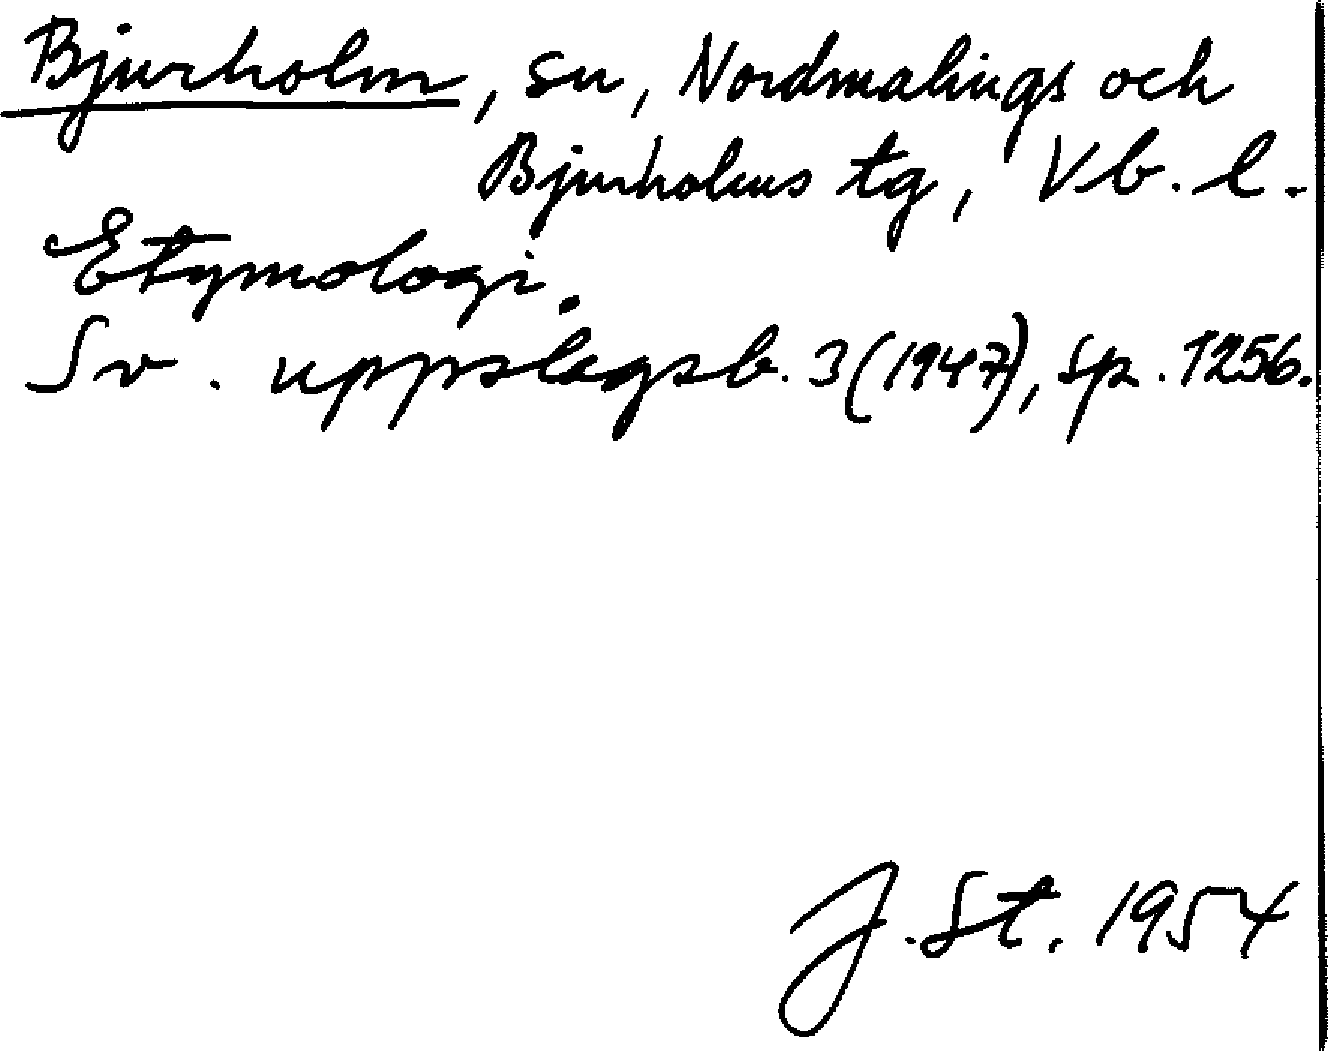 Bjurholm, sn, Nordmalings och
Bjurholms tg, Vb. l.
Etymologi.
Sv. uppslagsb. 3 (1947), sp. 1256.
J. St. 1954